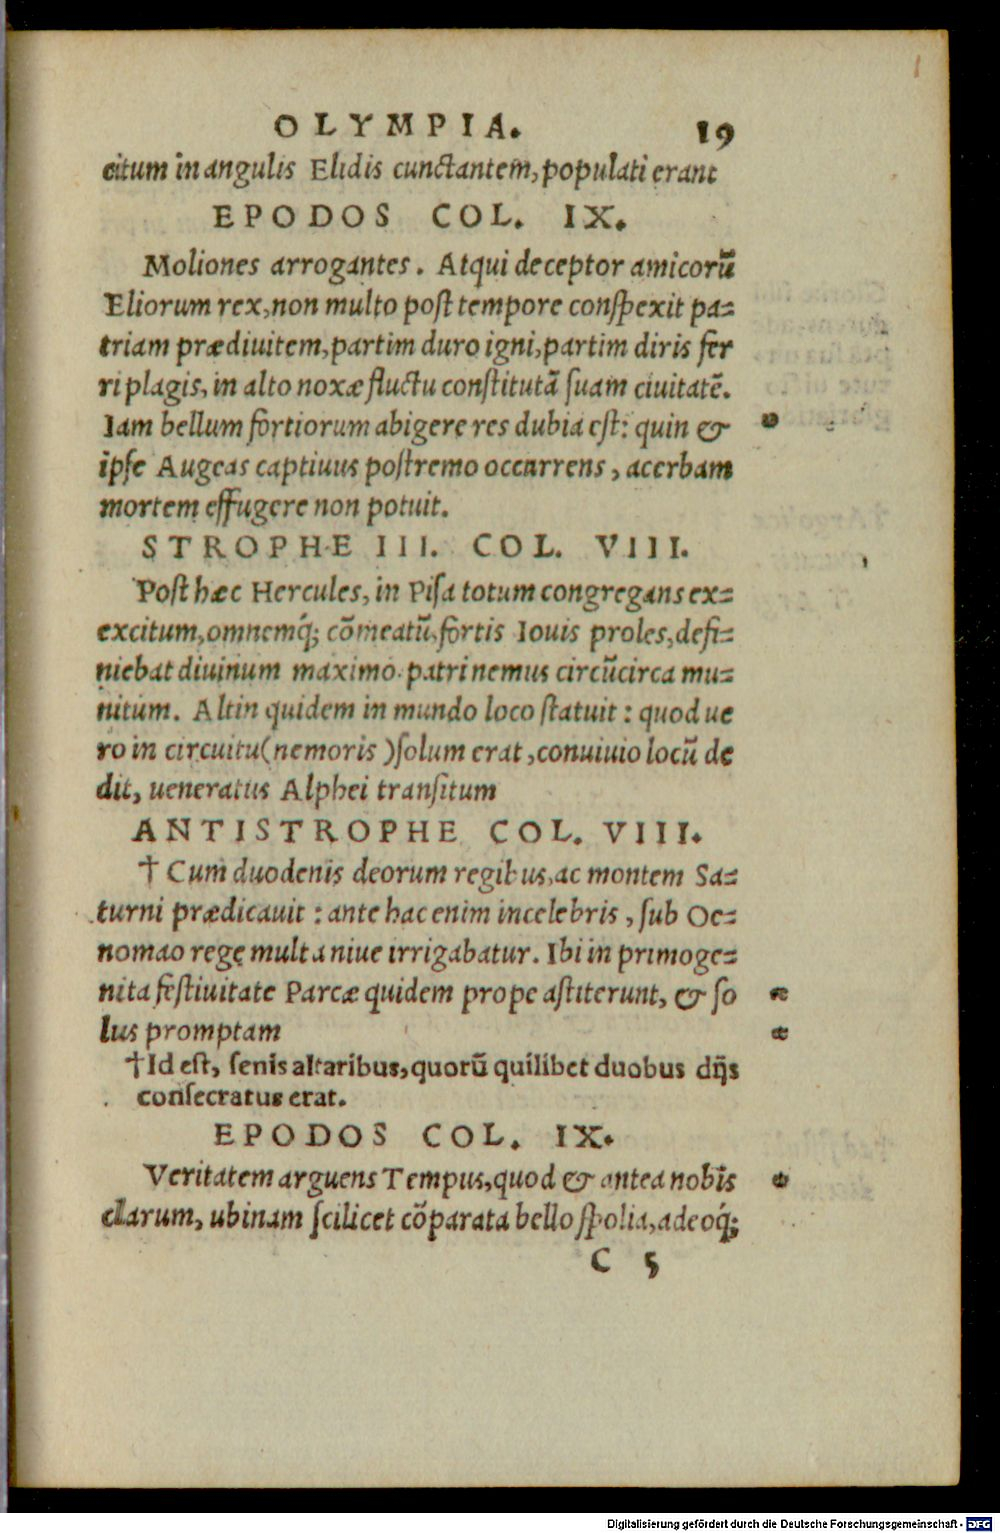 OLYMPIA. 19
citum in angulis Elidis cunctantem, populati erant
EPODOS COL. IX.
Moliones arrogantes. Atqui deceptor amicorũ
Eliorum rex, non multo post tempore conspexit pa=
triam prædiuitem, partim duro igni, partim diris fer
ri plagis, in alto noxæ fluctu constitutã suam ciuitatẽ.
Iam bellum fortiorum abigere res dubia est: quin &
ipse Augeas captiuus postremo occurrens, acerbam
mortem effugere non potuit.
STROPHE III. COL. VIII.
Post hæc Hercules, in Pisa totum congregans ex=
excitum, omnemq́; cõmeatũ, fortis Iouis proles, defi=
niebat diuinum maximo patri nemus circũcirca mu=
nitum. Altin quidem in mundo loco statuit: quod ue
ro in circuitu (nemoris) solum erat, conuiuio locũ de
dit, ueneratus Alphei transitum
ANTISTROPHE COL. VIII.
† Cum duodenis deorum regibus, ac montem Sa=
turni prædicauit: ante hac enim incelebris, sub Oe=
nomao rege multa niue irrigabatur. Ibi in primoge=
nita festiuitate Parcæ quidem prope astiterunt, & so
lus promptam
† Id est, senis altaribus, quorũ quilibet duobus dijs
consecratus erat.
EPODOS COL. IX.
Veritatem arguens Tempus, quod & antea nobis
clarum, ubinam scilicet cõparata bello spolia, adeoq́;
C 5
Digitalisierung gefördert durch die Deutsche Forschungsgemeinschaft - DFG